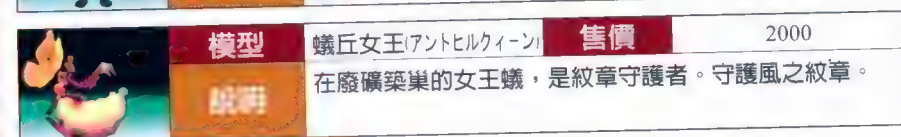 模型 蟻丘女王(アントヒルクィーン) 售價 2000
說明 在廢礦築巢的女王蟻，是紋章守護者。守護風之紋章。